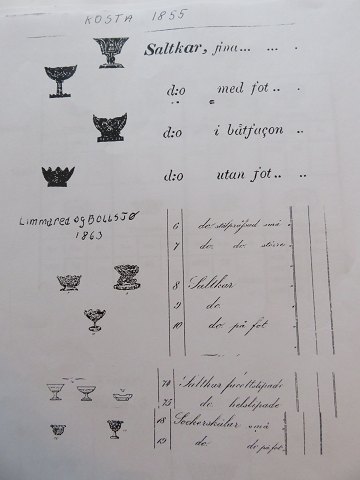 KOSTA 1855
Saltkar, fina... ... .
d:o med fot.. .
d:o i båtfaçon .
d:o utan fot.. .
Limmared og BOLLSJØ
1863
6 do små
7 do do större
8 Saltkar
9 do
10 do på fot
74 Saltkar facettslipade
75 do helslipade
18 Sockerskålar små
19 do do på fot